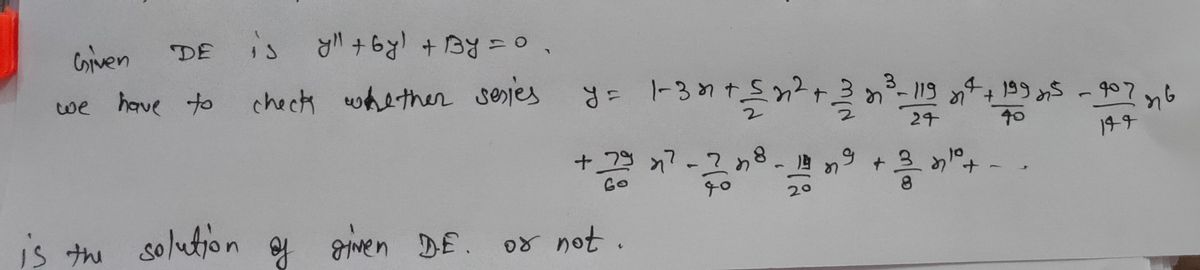 Given DE is y'' + 6y' + 13y = 0.
we have to check whether series y = 1-3x + 5/2 x² + 3/2 x³ - 119/24 x⁴ + 199/40 x⁵ - 407/144 x⁶
+ 79/60 x⁷ - 7/40 x⁸ - 19/20 x⁹ + 3/8 x¹⁰ + - .
is the solution of given D.E. or not.